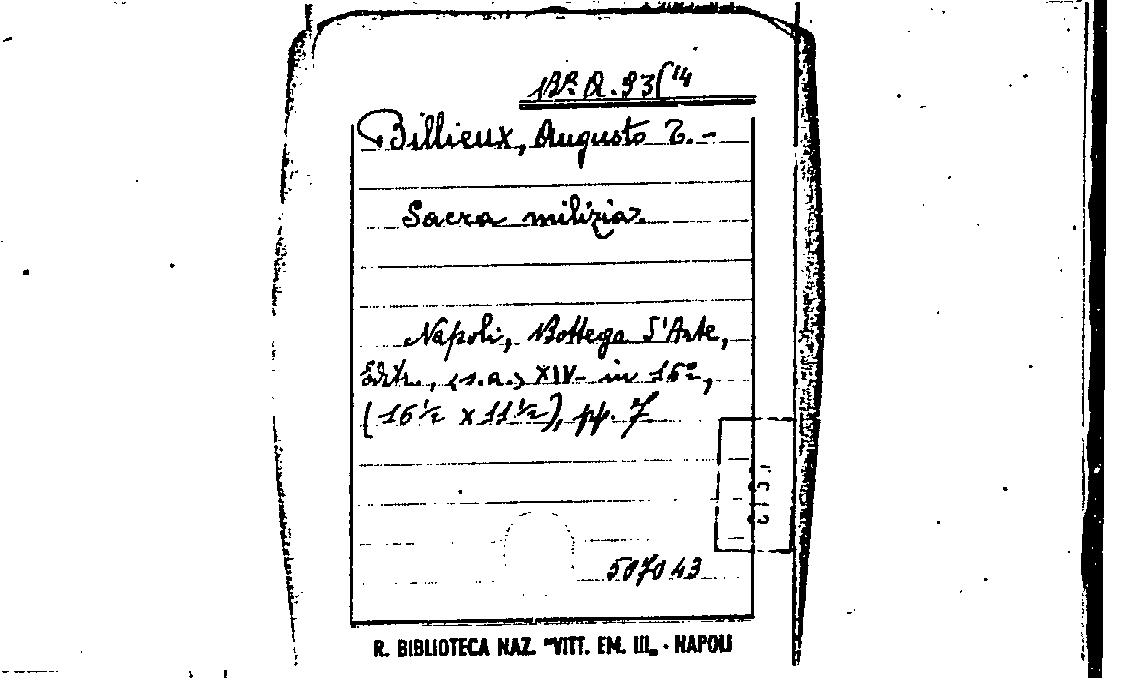 Bʀ. A. 93(14
Billieux, Augusto T. -
Sacra milizia.
Napoli, Bottega d'Arte,
Edtr., (s.a.) XIV - in 16º,
(16 ½ x 11 ½), pp. 7
507043
R. BIBLIOTECA NAZ. "VITT. EM. III„ - NAPOLI